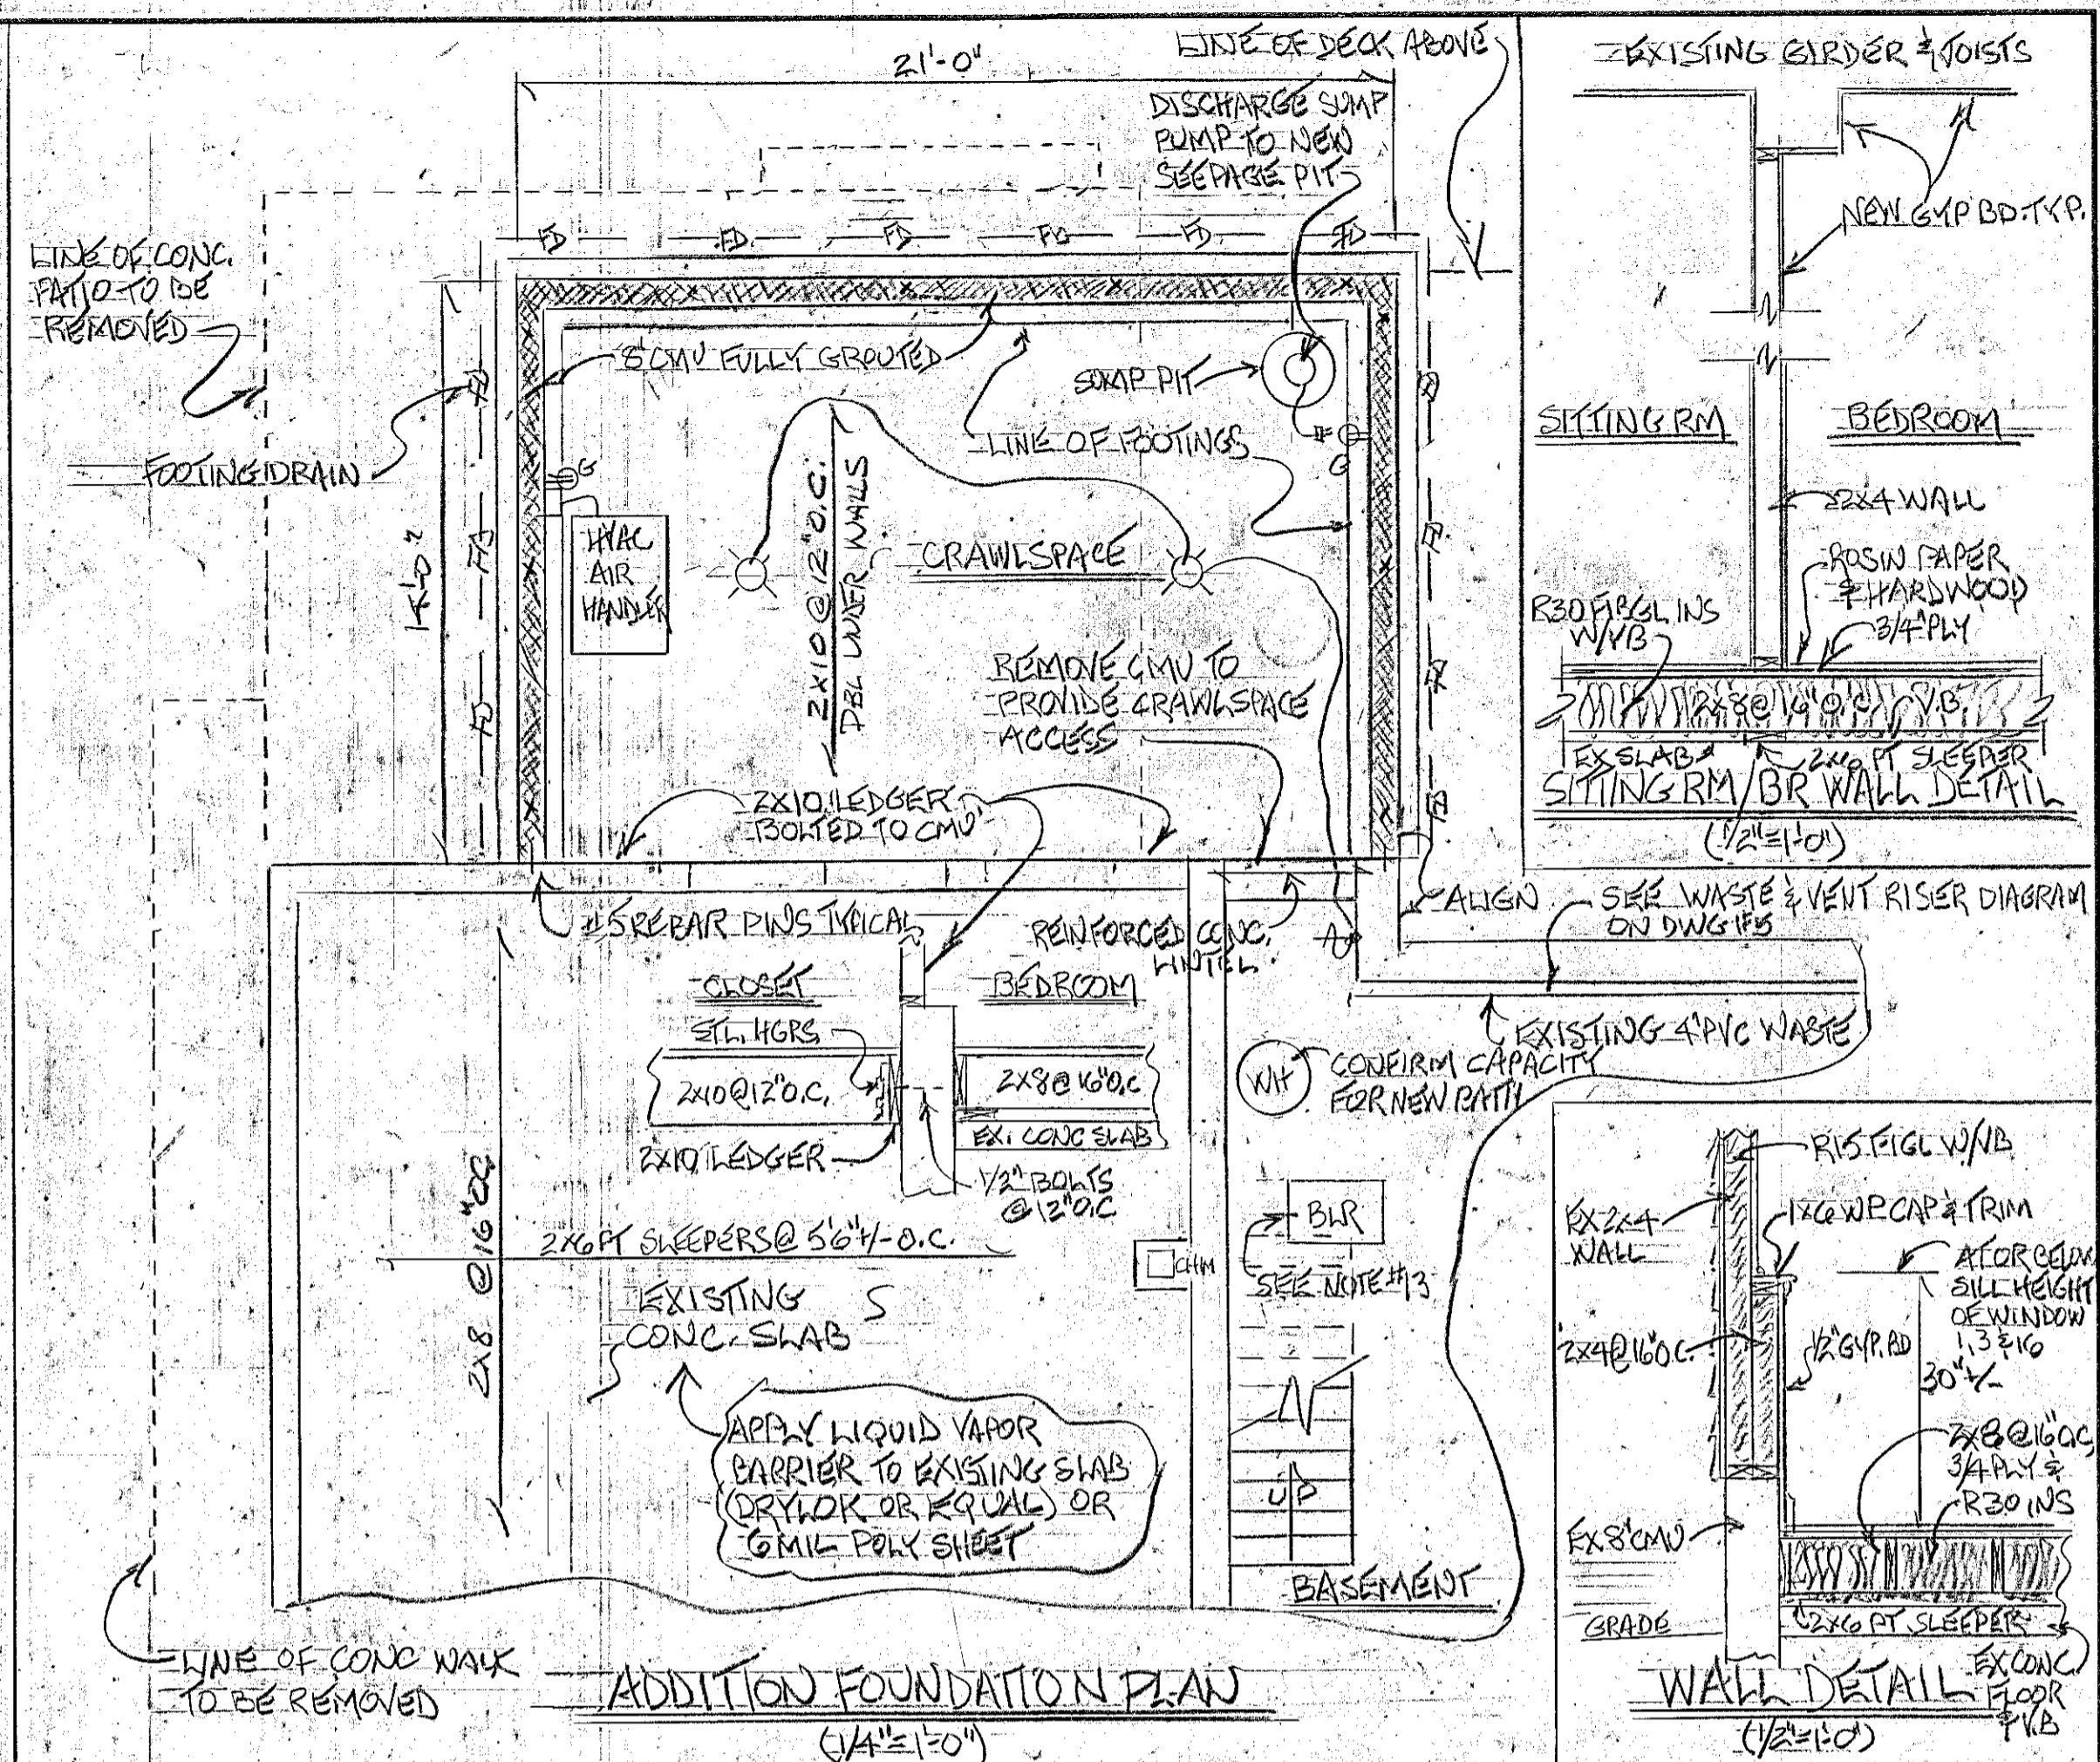 21'-0"
LINE OF DECK ABOVE
DISCHARGE SUMP
PUMP TO NEW
SEEPAGE PIT
FD FD FD FD FD FD
LINE OF CONC.
PATIO TO BE
REMOVED
8" CMU FULLY GROUTED
SUMP PIT
LINE OF FOOTINGS
FOOTING DRAIN
FD
FD
FD
FD
FD
FD
FD
G
G
HVAC
AIR
HANDLER
2X10 @ 12" O.C.
DBL UNDER WALLS
CRAWLSPACE
REMOVE CMU TO
PROVIDE CRAWLSPACE
ACCESS
2X10 LEDGER
BOLTED TO CMU
#5 REBAR PINS TYPICAL
REINFORCED CONC.
LINTEL
ALIGN
SEE WASTE & VENT RISER DIAGRAM
ON DWG #5
EXISTING 4" PVC WASTE
CLOSET
BEDROOM
STL. HGRS.
2X10 @ 12" O.C.
2X8 @ 16" O.C
EX. CONC SLAB
2X10 LEDGER
1/2" BOLTS
@ 12" O.C
WH
CONFIRM CAPACITY
FOR NEW BATH
2X8 @ 16" OC
2X6 PT SLEEPERS @ 5'6" +/- O.C.
BLR
SEE NOTE #13
CHIM
EXISTING
CONC. SLAB
S
APPLY LIQUID VAPOR
BARRIER TO EXISTING SLAB
(DRYLOK OR EQUAL) OR
6 MIL POLY SHEET
UP
BASEMENT
LINE OF CONC WALK
TO BE REMOVED
ADDITION FOUNDATION PLAN
(1/4"=1'-0")
EXISTING GIRDER & JOISTS
NEW GYP BD. TYP.
SITTING RM
BEDROOM
2X4 WALL
ROSIN PAPER
& HARDWOOD
3/4" PLY
R30 FIBGL INS
W/VB
2X8 @ 16" O.C. V.B.
EX SLAB
2X6 PT SLEEPER
SITTING RM / BR WALL DETAIL
(1/2"=1'-0")
R15 FIGL W/VB
EX 2X4
WALL
1X6 WP CAP & TRIM
AT OR BELOW
SILL HEIGHT
OF WINDOW
1, 3 & 16
2X4 @ 16" O.C.
1/2" GYP. BD
30" +/-
2X8 @ 16" O.C
3/4 PLY &
R30 INS
EX 8" CMU
GRADE
2X6 PT SLEEPER
EX CONC
FLOOR
& V.B
WALL DETAIL
(1/2"=1'-0")